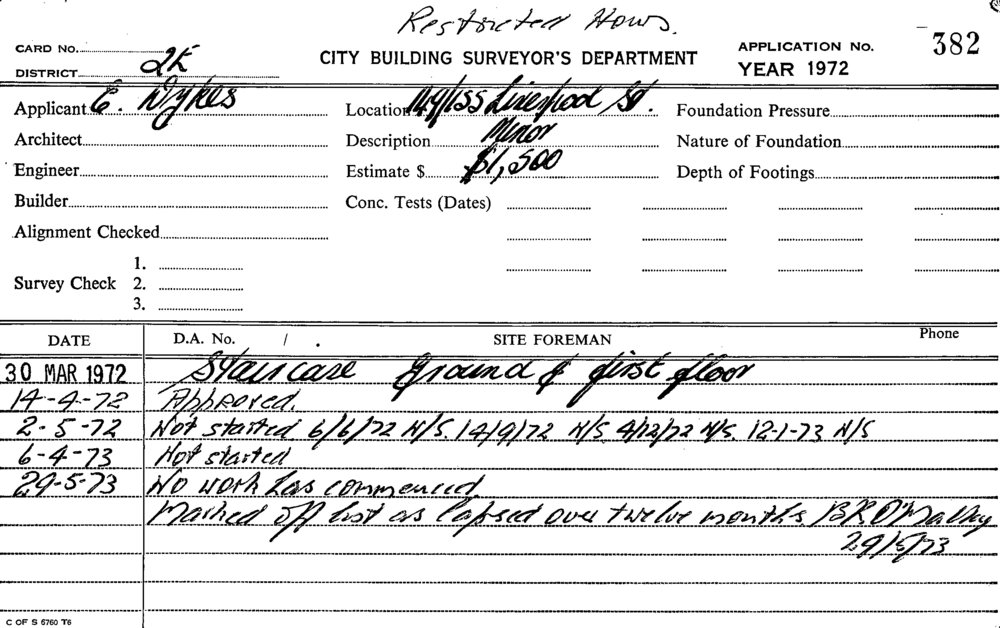 Restricted Hours.
CARD No.
DISTRICT 2E
CITY BUILDING SURVEYOR'S DEPARTMENT
APPLICATION No. 382
YEAR 1972
Applicant E. Dykes
Location 149/155 Liverpool St.
Foundation Pressure
Architect
Description Minor
Nature of Foundation
Engineer
Estimate $ $1,500
Depth of Footings
Builder
Conc. Tests (Dates)
Alignment Checked
Survey Check 1.
2.
3.
DATE D.A. No. / . SITE FOREMAN Phone
30 MAR 1972 Staircase ground & first floor
14-4-72 Approved.
2-5-72 Not started 6/6/72 N/S. 14/9/72 N/S 4/12/72 N/S. 12-1-73 N/S
6-4-73 Not started
29-5-73 No work has commenced.
Marked off list as lapsed over twelve months
29/5/73
C OF S 6760 T6